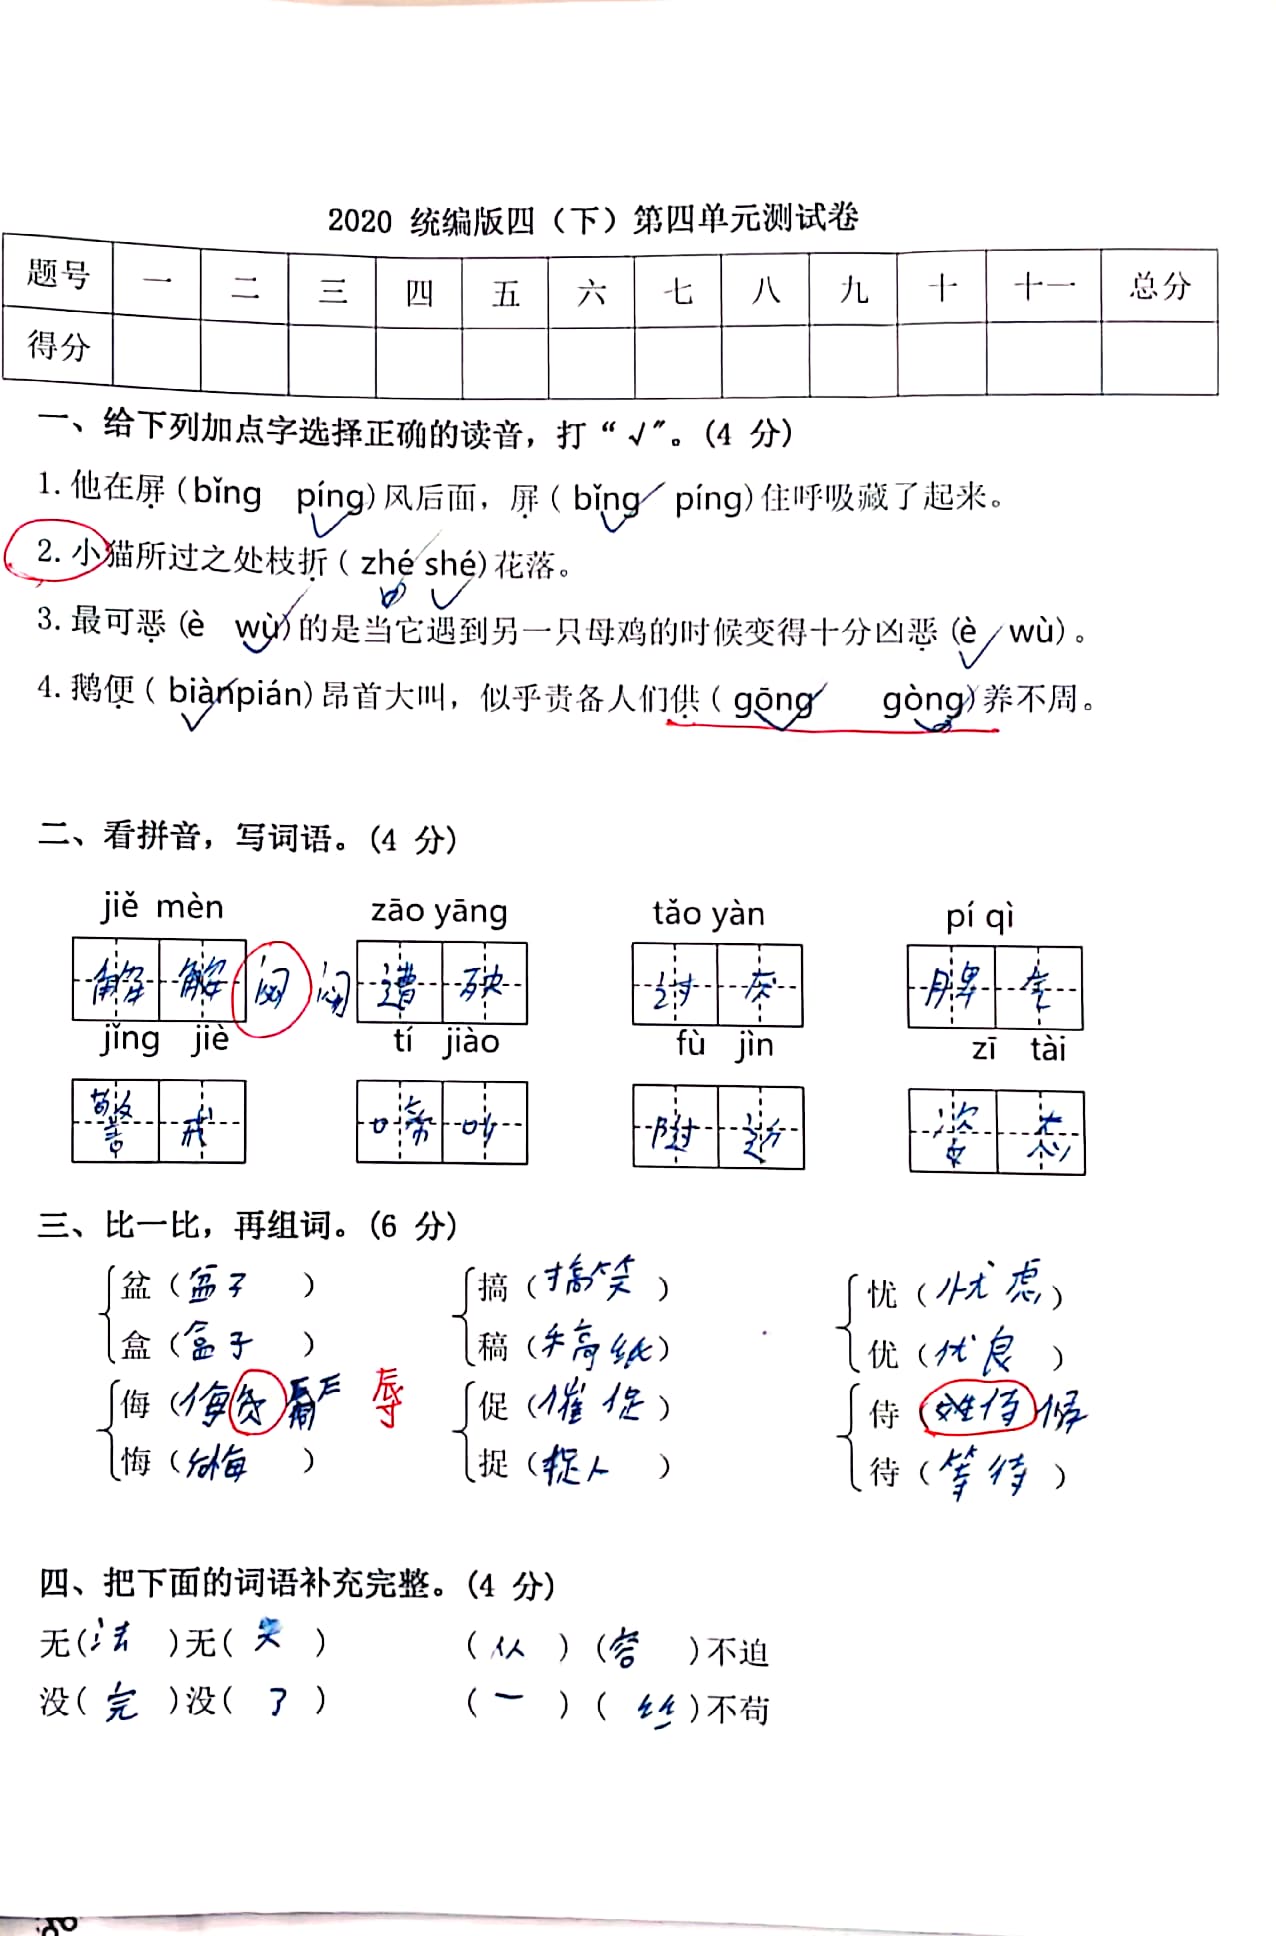 2020 统编版四（下）第四单元测试卷
题号 一 二 三 四 五 六 七 八 九 十 十一 总分
得分
一、给下列加点字选择正确的读音，打“√”。(4 分)
1.他在屏(bǐng píng)风后面，屏(bǐng píng)住呼吸藏了起来。
2.小猫所过之处枝折(zhé shé)花落。
3.最可恶(è wù)的是当它遇到另一只母鸡的时候变得十分凶恶(è wù)。
4.鹅便(biànpián)昂首大叫，似乎责备人们供(gōng gòng)养不周。
二、看拼音，写词语。(4 分)
jiě mèn zāo yāng tǎo yàn pí qì
解 解 闷 闷 遭 殃 讨 厌 脾 气
jǐng jiè tí jiào fù jìn zī tài
警 戒 啼 叫 附 近 姿 态
三、比一比，再组词。(6 分)
盆（盆子） 搞（搞笑） 忧（忧虑）
盒（盒子） 稿（稿纸） 优（优良）
侮（侮 辱 促（催促） 侍（侍 候
悔（后悔） 捉（捉人） 待（等待）
四、把下面的词语补充完整。(4 分)
无(法)无(天) （从）（容）不迫
没(完)没(了) （一）（丝）不苟